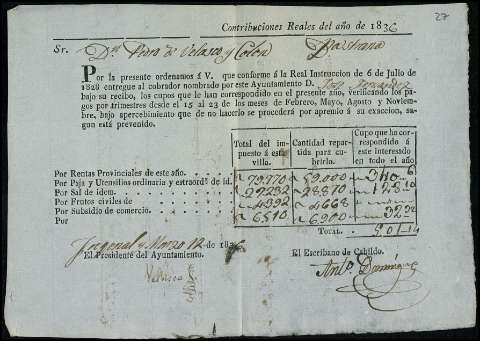 27
Contribuciones Reales del año de 1836
Sr. Dn. Pedro de Velasco y Colon
Por la presente ordenamos á V. que conforme á la Real Instruccion de 6 de Julio de
1828 entregue al cobrador nombrado por este Ayuntamiento D. Fernandez
bajo su recibo, los cupos que le han correspondido en el presente año, verificando los pa-
gos por trimestres desde el 15 al 23 de los meses de Febrero, Mayo, Agosto y Noviem-
bre, bajo apercebimiento que de no hacerlo se procederá por apremio á su exaccion, se-
gun está prevenido.
Total del im- puesto á esta villo. Cantidad repar- tida para cu- brirlo. Cupo que ha cor- respondido á este interesado en todo el año
Por Rentas Provinciales de este año. 79.770 59.000
Por Paja y Utensilios ordinaria y extraordª de id. 27232 28870 128
Por Sal de idem.
Por Frutos civiles de 4392 4668
Por Subsidio de comercio. 6.510 6.900 32
Por
Total. 501
Marzo 12 de 1836
El Presidente del Ayuntamiento. El Escribano de Cabildo.
Velasco Antº. Dominguez